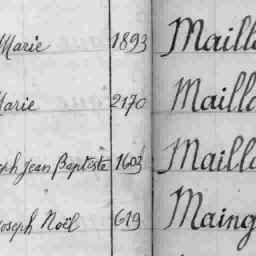 Marie 1893 Mailla
Marie 2170 Mailla
eph Jean Baptiste 1603 Mailla
oseph Noël 619 Maing